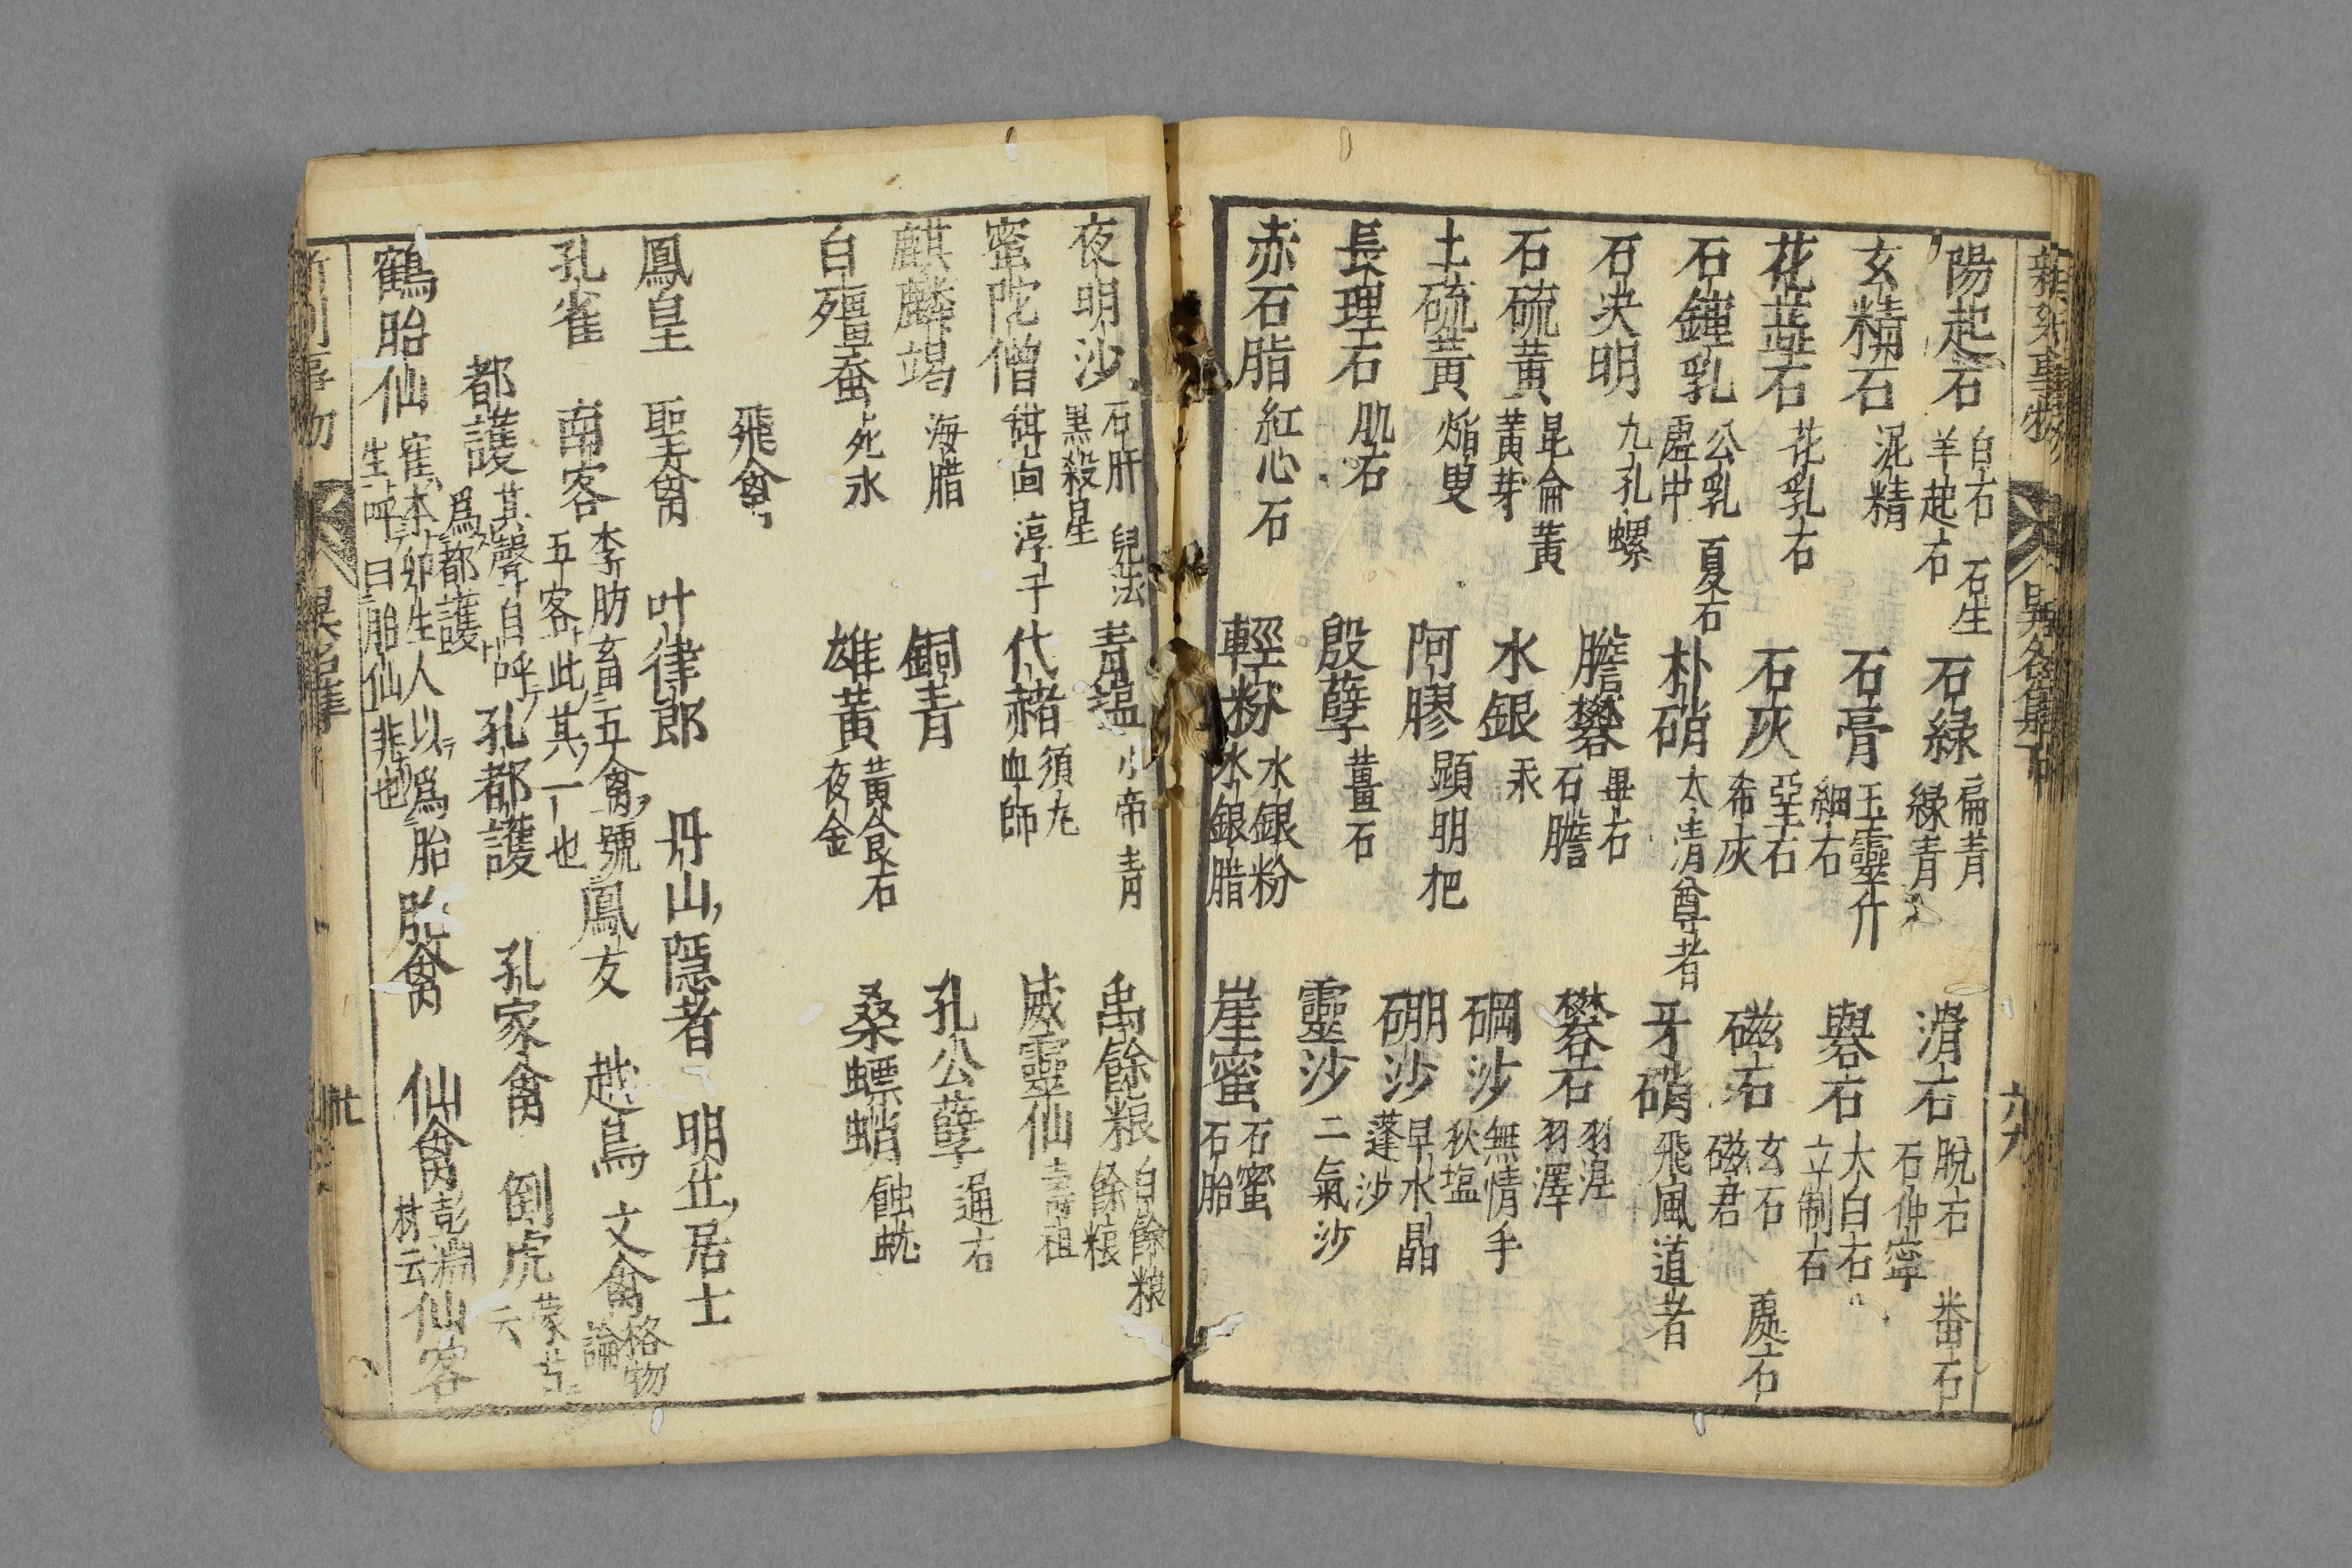 陽起石 白石 羊起石 石生 石緑 扁青 緑青 滑石 脫石 石仲寧 畨石
玄精石 泥精 石膏 玉靈片 細石 礜石 大白石 立制石
花蕋石 花乳石 石灰 堊石 希灰 磁石 玄石 磁君 處石
石鐘乳 公乳 處中 夏石 朴硝 太清尊者 牙硝 飛風道者
石决明 九孔螺 膽礬 畢石 石膽 礬石 羽涅 羽澤
石硫黃 昆侖黃 黃芽 水銀 汞 硇沙 無情手 狄塩
土硫黃 烟叟 阿膠 顕明把 硼沙 早水晶 蓬沙
長理石 肌石 殷孽 薑石 靈沙 二氣沙
赤石脂 紅心石 輕粉 水銀粉 水銀腊 崖蜜 石蜜 石胎
夜明沙 石肝 黒殺星 兒法 青塩 小帝青 禹餘粮 白餘粮 餘粮
蜜陀僧 甜面淳于 代赭 須丸 血師 威靈仙 壽祖
麒麟竭 海腊 銅青 孔公孽 通石
白殭蚕 死氷 雄黃 黃食石 夜金 桑螵蛸 蝕蚘
飛禽
鳳皇 聖禽 叶律郎 丹山隱者 明丘居士
孔雀 南客 李昉畜五禽號 五客此其一也 鳳友 越鳥 文禽 格物論
都護 其聲自呼 爲都護 孔都護 孔家禽 倒虎
鶴胎仙 寉本卵生人以爲胎 生呼曰胎仙非也 胎禽 仙禽 彭淵材云 仙客